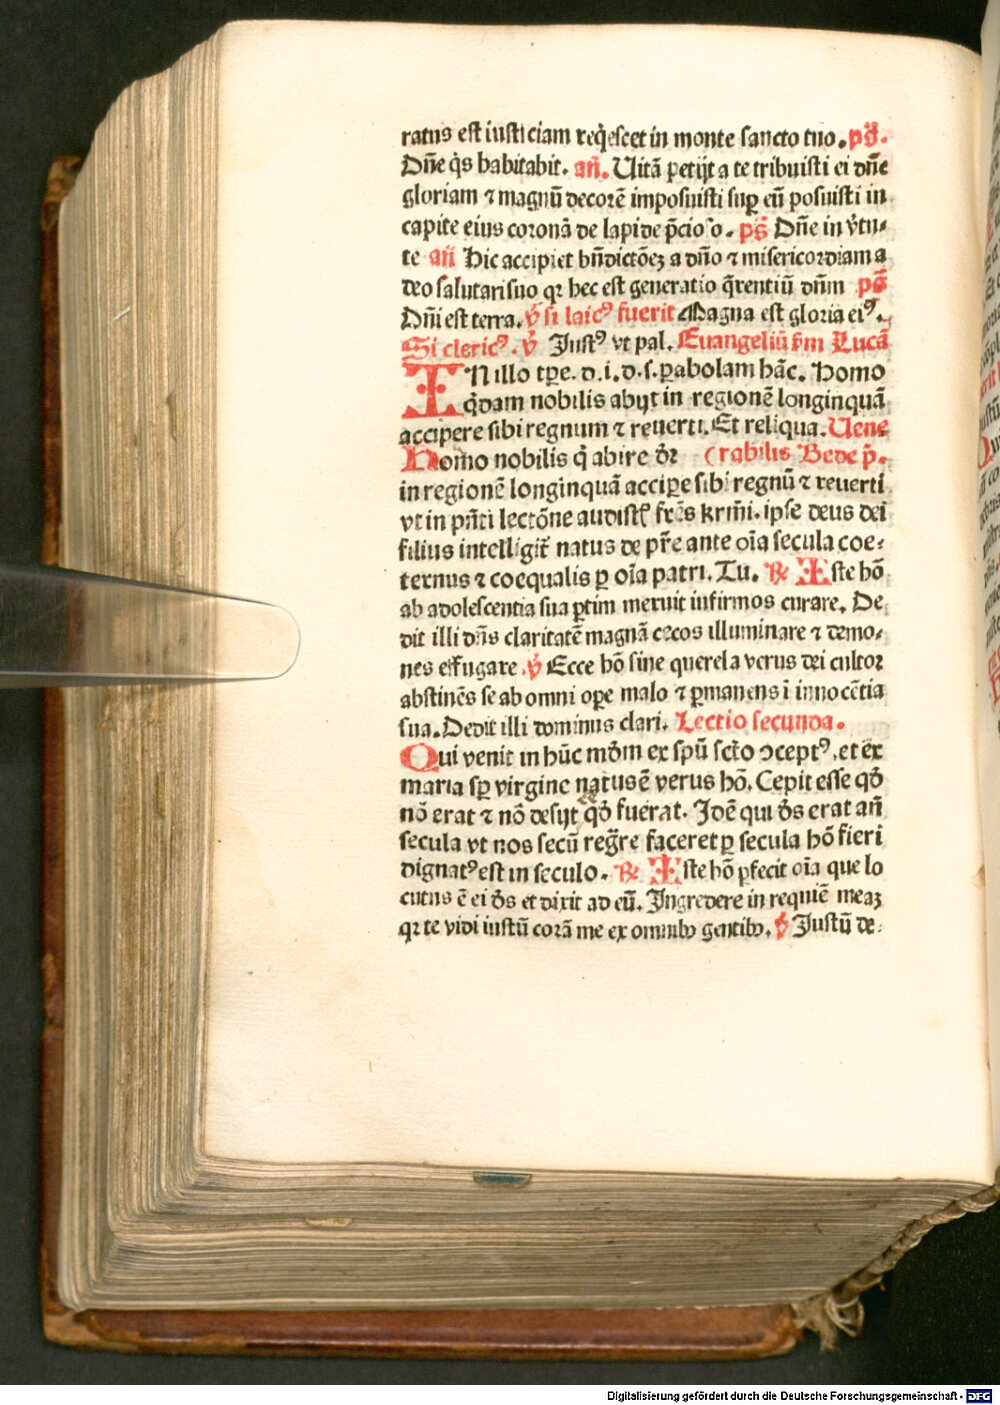 ratus est iusticiam reqͥescet in monte sancto tuo. pͫs.
Dn̄e qͥs habitabit. an̄. Uitā petijt a te tribuisti ei dn̄e
gloriam ⁊ magnū decorē imposuisti suꝑ eū posuisti in
capite eius coronā de lapide p̄cioso. pͫs Dn̄e in v̓tu⸗
te an̄ Hic accipiet bn̄dictōeꝫ a dn̄o ⁊ misericordiam a
deo salutari suo qꝛ hec est generatio q̄rentiū dn̄m pͫs
Dn̄i est terra. ℣ si laicꝰ fuerit Magna est gloria eiꝰ.
Si clericꝰ. ℣ Justꝰ vt pal. Euangeliū ẜm Lucā
IN illo tꝑe. d. i. d. s. ꝑabolam hāc. Homo
qͥdam nobilis abijt in regionē longinquā
accipere sibi regnum ⁊ reuerti. Et reliqua. Uene
Homo nobilis q̄ abire dꝛ (rabilis Bede p̄.
in regionē longinquā acciꝑe sibi regnū ⁊ reuerti
vt in pn̄ti lectōne audistꝭ frēs krm̄i. ipse deus dei
filius intelligit̄ natus de pr̄e ante oīa secula coe⸗
ternus ⁊ coequalis ꝑ oīa patri. Tu. ℟ Iste hō
ab adolescentia sua ꝑtim meruit infirmos curare. De
dit illi dn̄s claritatē magnā cecos illuminare ⁊ demo⸗
nes effugare. ℣ Ecce hō sine querela verus dei cultor
abstinēs se ab omni oꝑe malo ⁊ ꝑmanens ī innocētia
sua. Dedit illi dominus clari. Lectio secunda.
Qui venit in hūc mōm ex spū sctō ↄceptꝰ. et ex
maria sꝑ virgine natus ē verus hō. Cepit esse qđ
nō erat ⁊ nō desijt qđ fuerat. Jdē qui đs erat an̄
secula vt nos secū reg̅re faceret ꝑ secula hō fieri
dignatꝰ est in seculo. ℟ Iste hō ꝑfecit oīa que lo
cutus ē ei đs et dixit ad eū. Ingredere in requiē meaꝫ
qꝛ te vidi iustū corā me ex omnibꝫ gentibꝫ. ℣ Justū de⸗
Digitalisierung gefördert durch die Deutsche Forschungsgemeinschaft - DFG